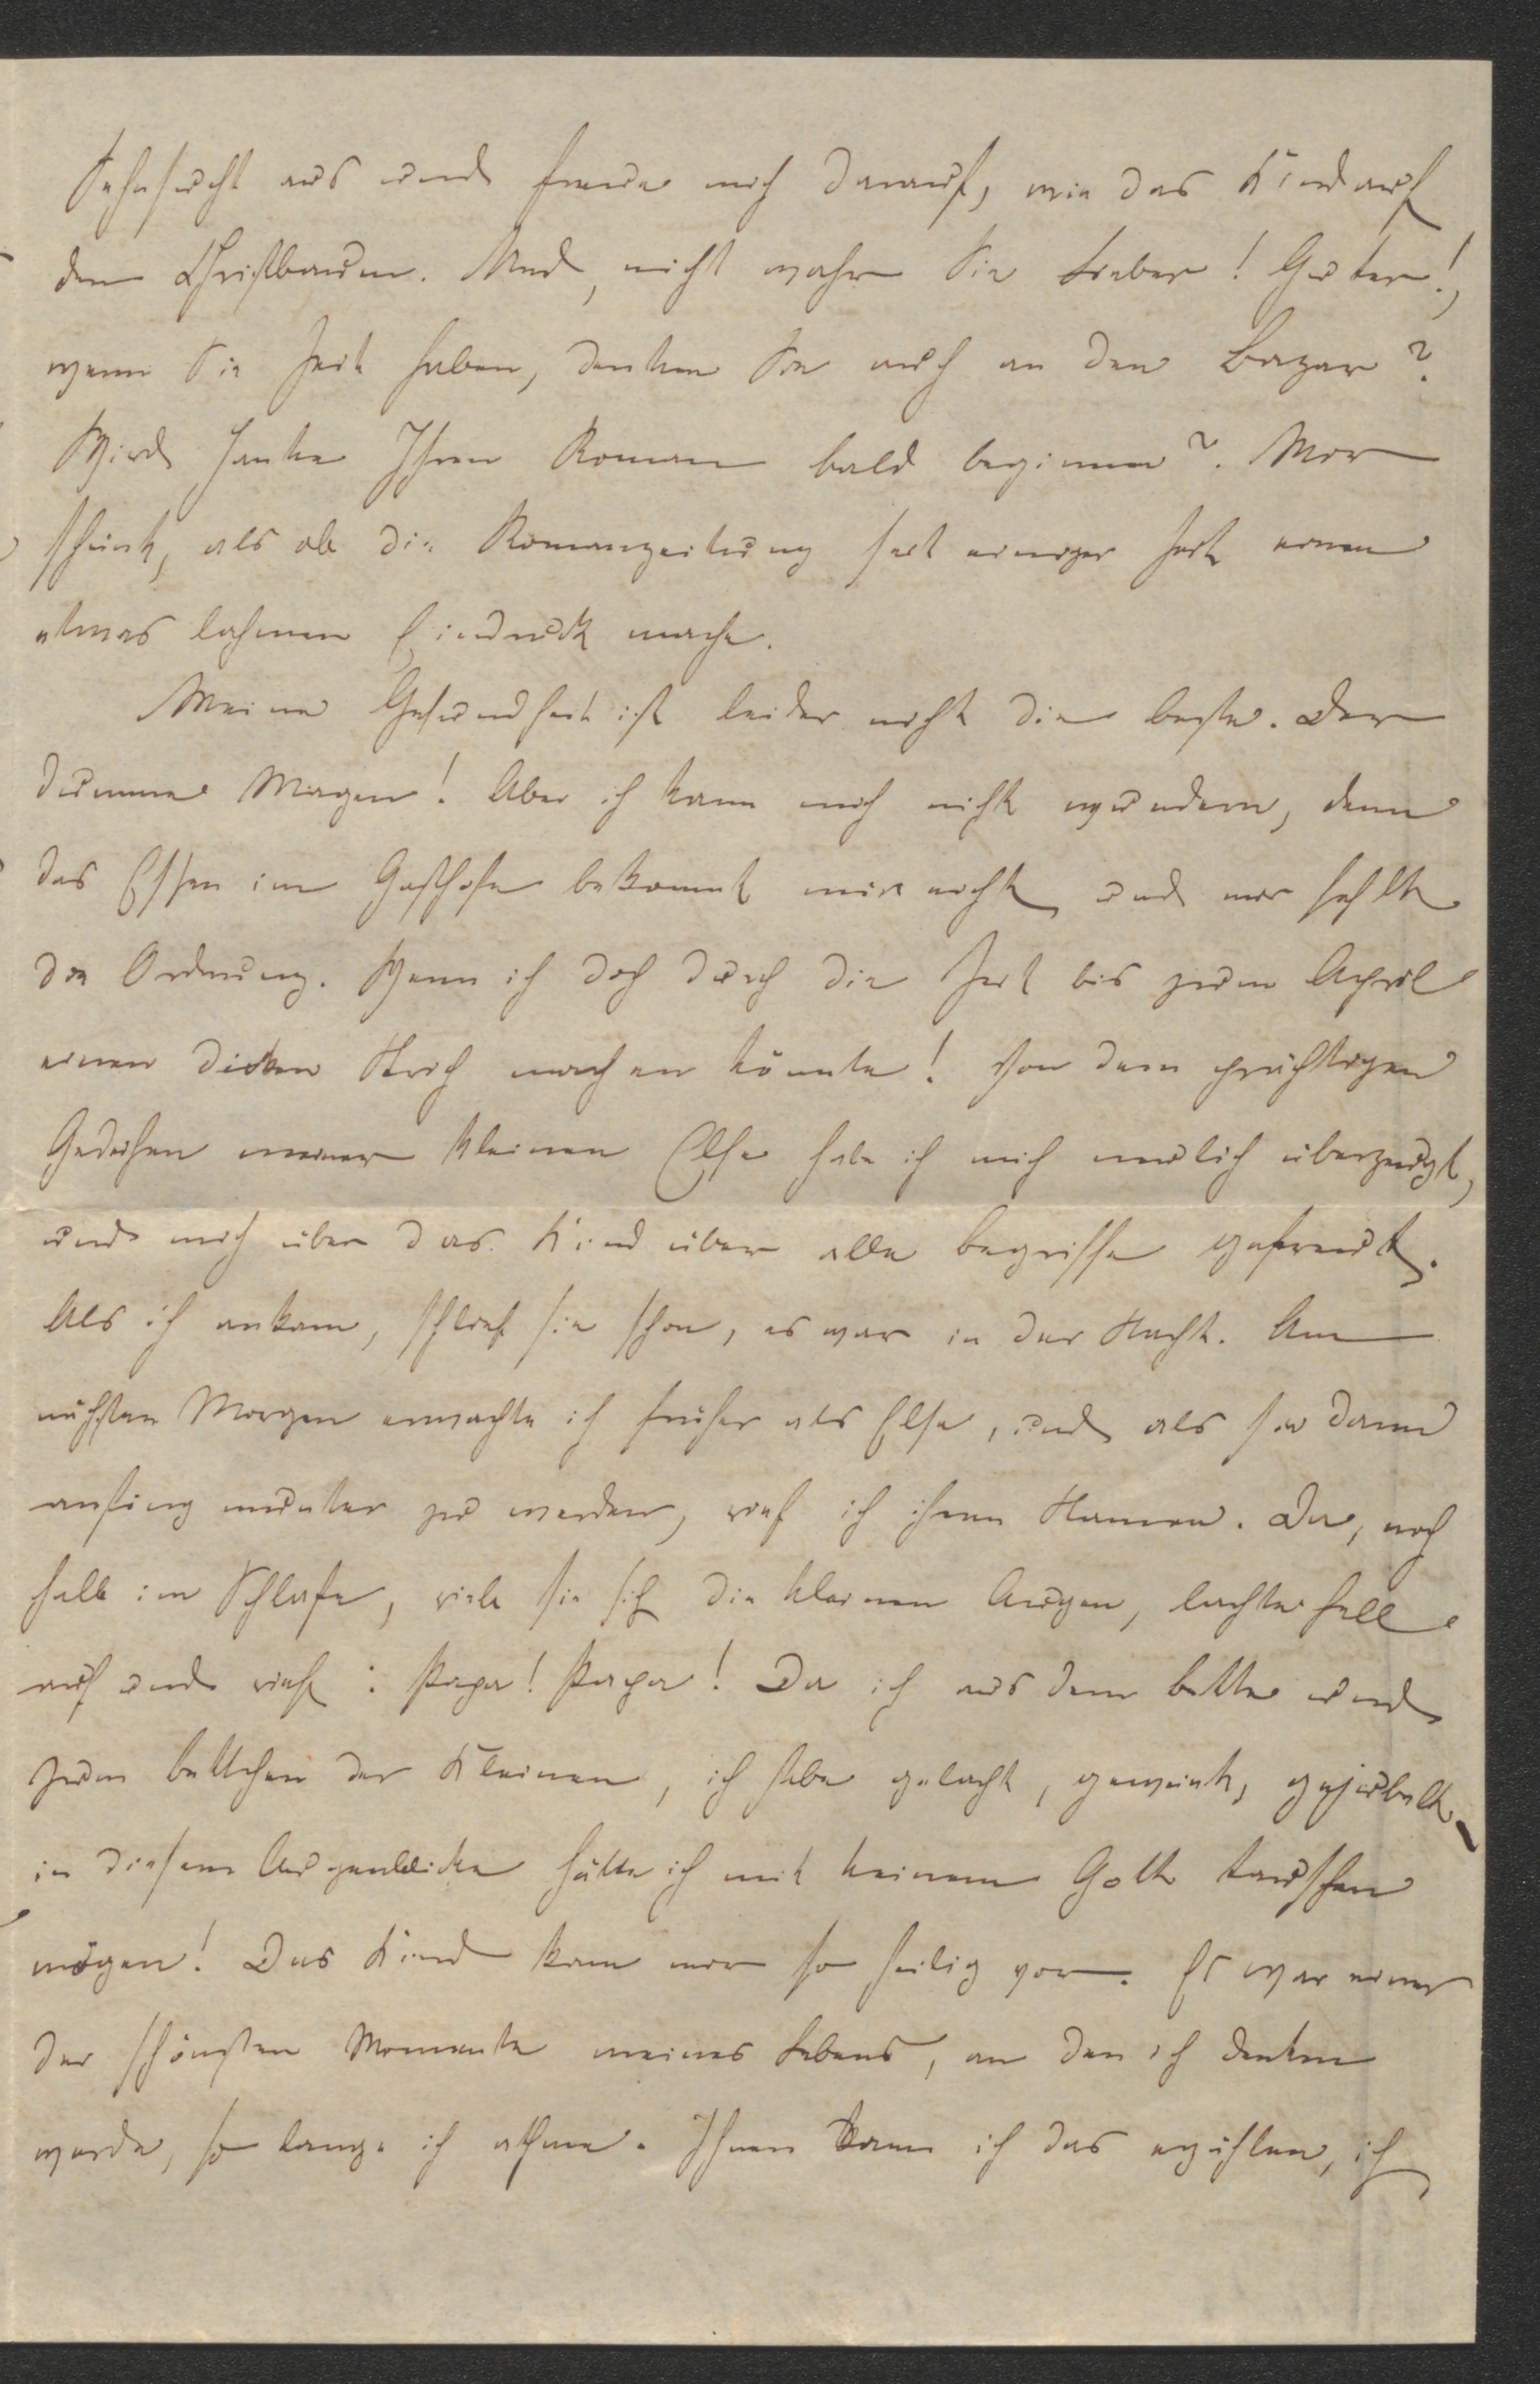 Sehnsucht aus und freue mich darauf, wie das Kind auf
den Christbaum. Und, nicht wahr Sie Lieber! Guter!,
wenn Sie Zeit haben, denken Sie auch an den Bazar?
Wird Janke Ihren Roman bald beginnen? Mir
scheint, als ob die Romanzeitung seit einiger Zeit einen
etwas lahmen Eindruck mache.
Meine Gesundheit ist leider nicht die beste. Der
dumme Magen! Aber ich kann mich nicht wundern, denn
das Essen im Gasthofe bekommt mir nicht und mir fehlt
die Ordnung. Wenn ich doch durch die Zeit bis zum April
einen dicken Strich machen könnte! Von dem prächtigen
Gedeihen meiner kleinen Else habe ich mich neulich überzeugt,
und mich über das Kind über alle Begriffe gefreut.
Als ich ankam, schlief sie schon, es war in der Nacht. Am
nächsten Morgen erwachte ich früher als Else, und als sie dann
anfing munter zu werden, rief ich ihren Namen. Da, noch
halb im Schlafe, rieb sie sich die kleinen Augen, lachte hell
auf und rief: Papa! Papa! Da ich aus dem Bette und
zum Bettchen der Kleinen, ich habe gelacht, geweint, gejubelt,
in diesem Augenblicke hätte ich mit keinem Gott tauschen
mögen! Das Kind kam mir so heilig vor. Es war einer
der schönsten Momente meines Lebens, an den ich denken
werde, so lange ich athme. Ihnen kann ich das erzählen, ich